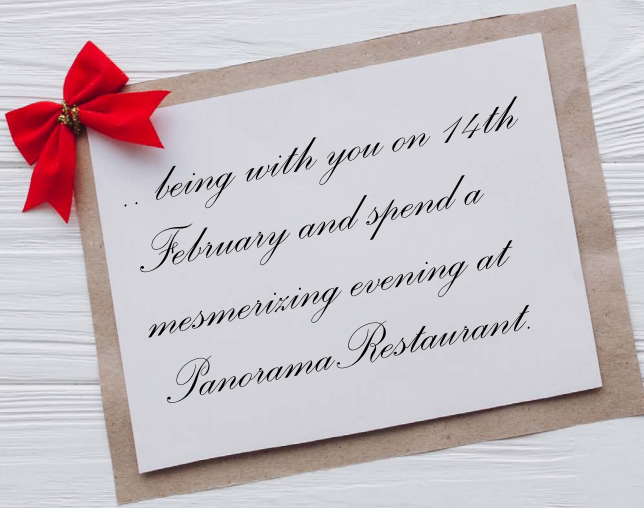 .. being with you on 14th
February and spend a
mesmerizing evening at
Panorama Restaurant.